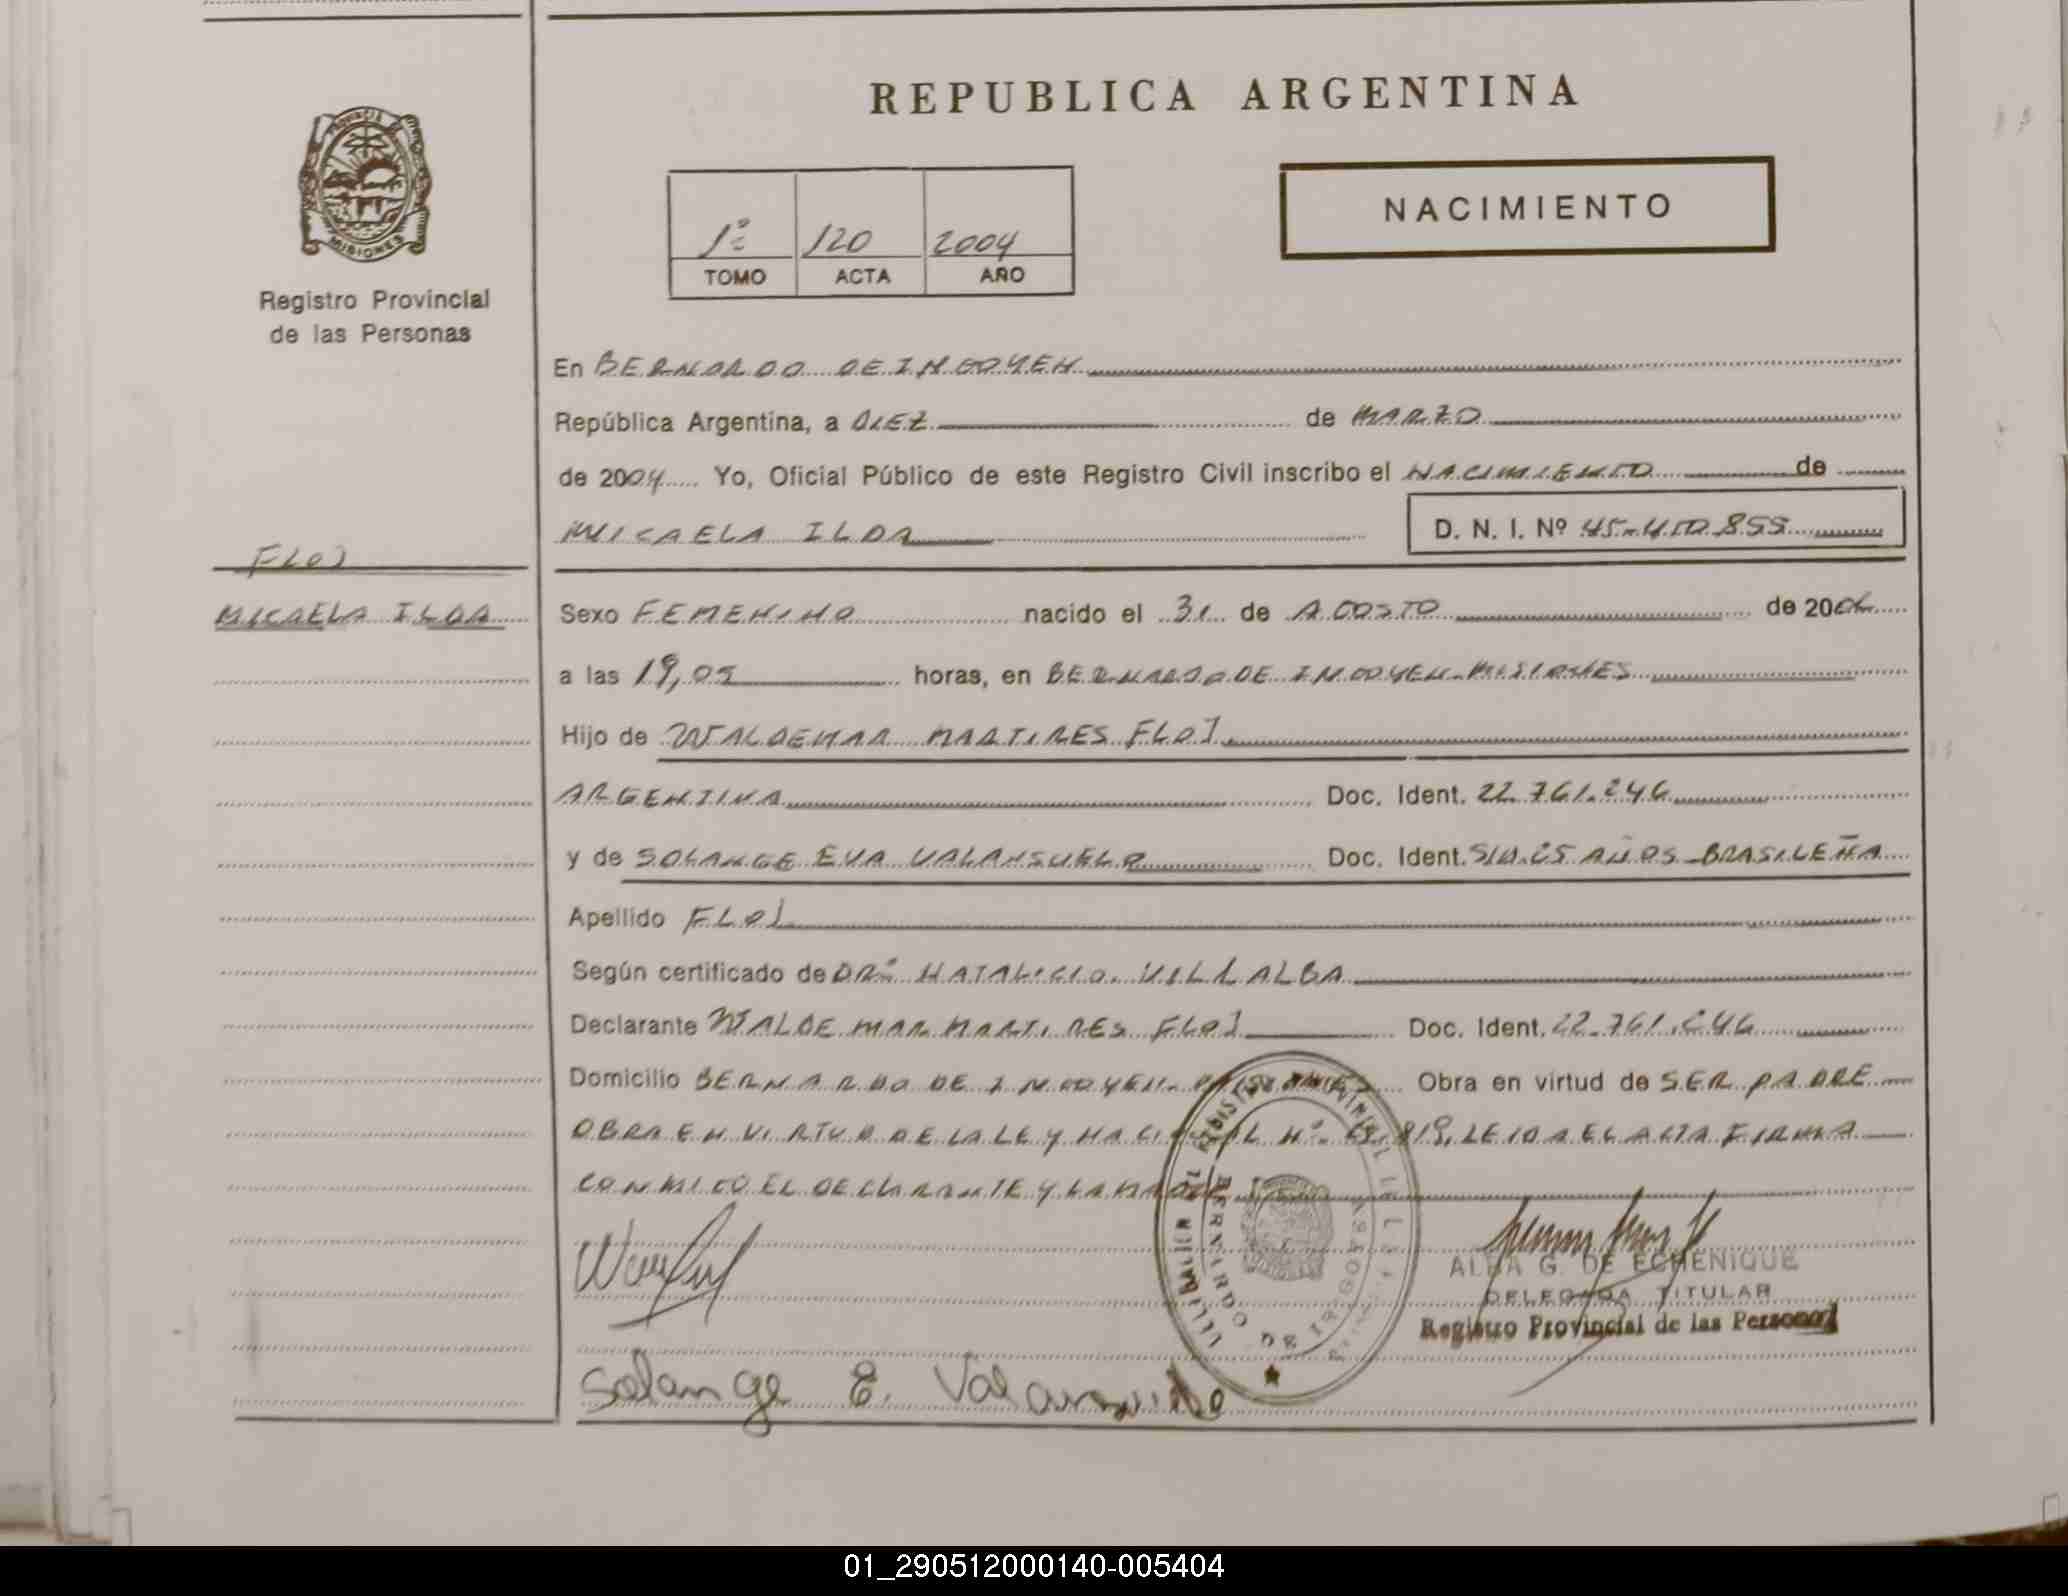 PROVINCIA DE
MISIONES
Registro Provincial
de las Personas
REPUBLICA ARGENTINA
NACIMIENTO
1º 120 2004
TOMO ACTA AÑO
En BERNARDO DE IRIGOYEN
República Argentina, a DIEZ de MARZO
de 2004 Yo, Oficial Público de este Registro Civil inscribo el NACIMIENTO de
MICAELA ILDA D. N. I. Nº 45.410.855
FLOJ
MICAELA ILDA
Sexo FEMENINO nacido el 31 de AGOSTO de 200
a las 19,05 horas, en BERNARDO DE IRIGOYEN-MISIONES
Hijo de WALDEMAR MARTIRES FLOJ
ARGENTINA Doc. Ident. 22.761.246
y de SOLANGE EVA VALANSUELO Doc. Ident. S/D.25 AÑOS-BRASILEÑA
Apellido FLOJ
Según certificado de DRº NATALICIO VILLALBA
Declarante WALDEMAR MARTIRES FLOJ Doc. Ident. 22.761.246
Domicilio BERNARDO DE IRIGOYEN-MISIONES Obra en virtud de SER PADRE
OBRA EN VIRTUD DE LA LEY NACIONAL Nº 819, LEIDA EL ACTA FIRMA
CONMIGO EL DECLARANTE Y LA MADRE
BERNARDO DE IRIGOYEN
ALBA G. DE ECHENIQUE
DELEGADA TITULAR
Registro Provincial de las Personas
Solange E.
01_290512000140-005404